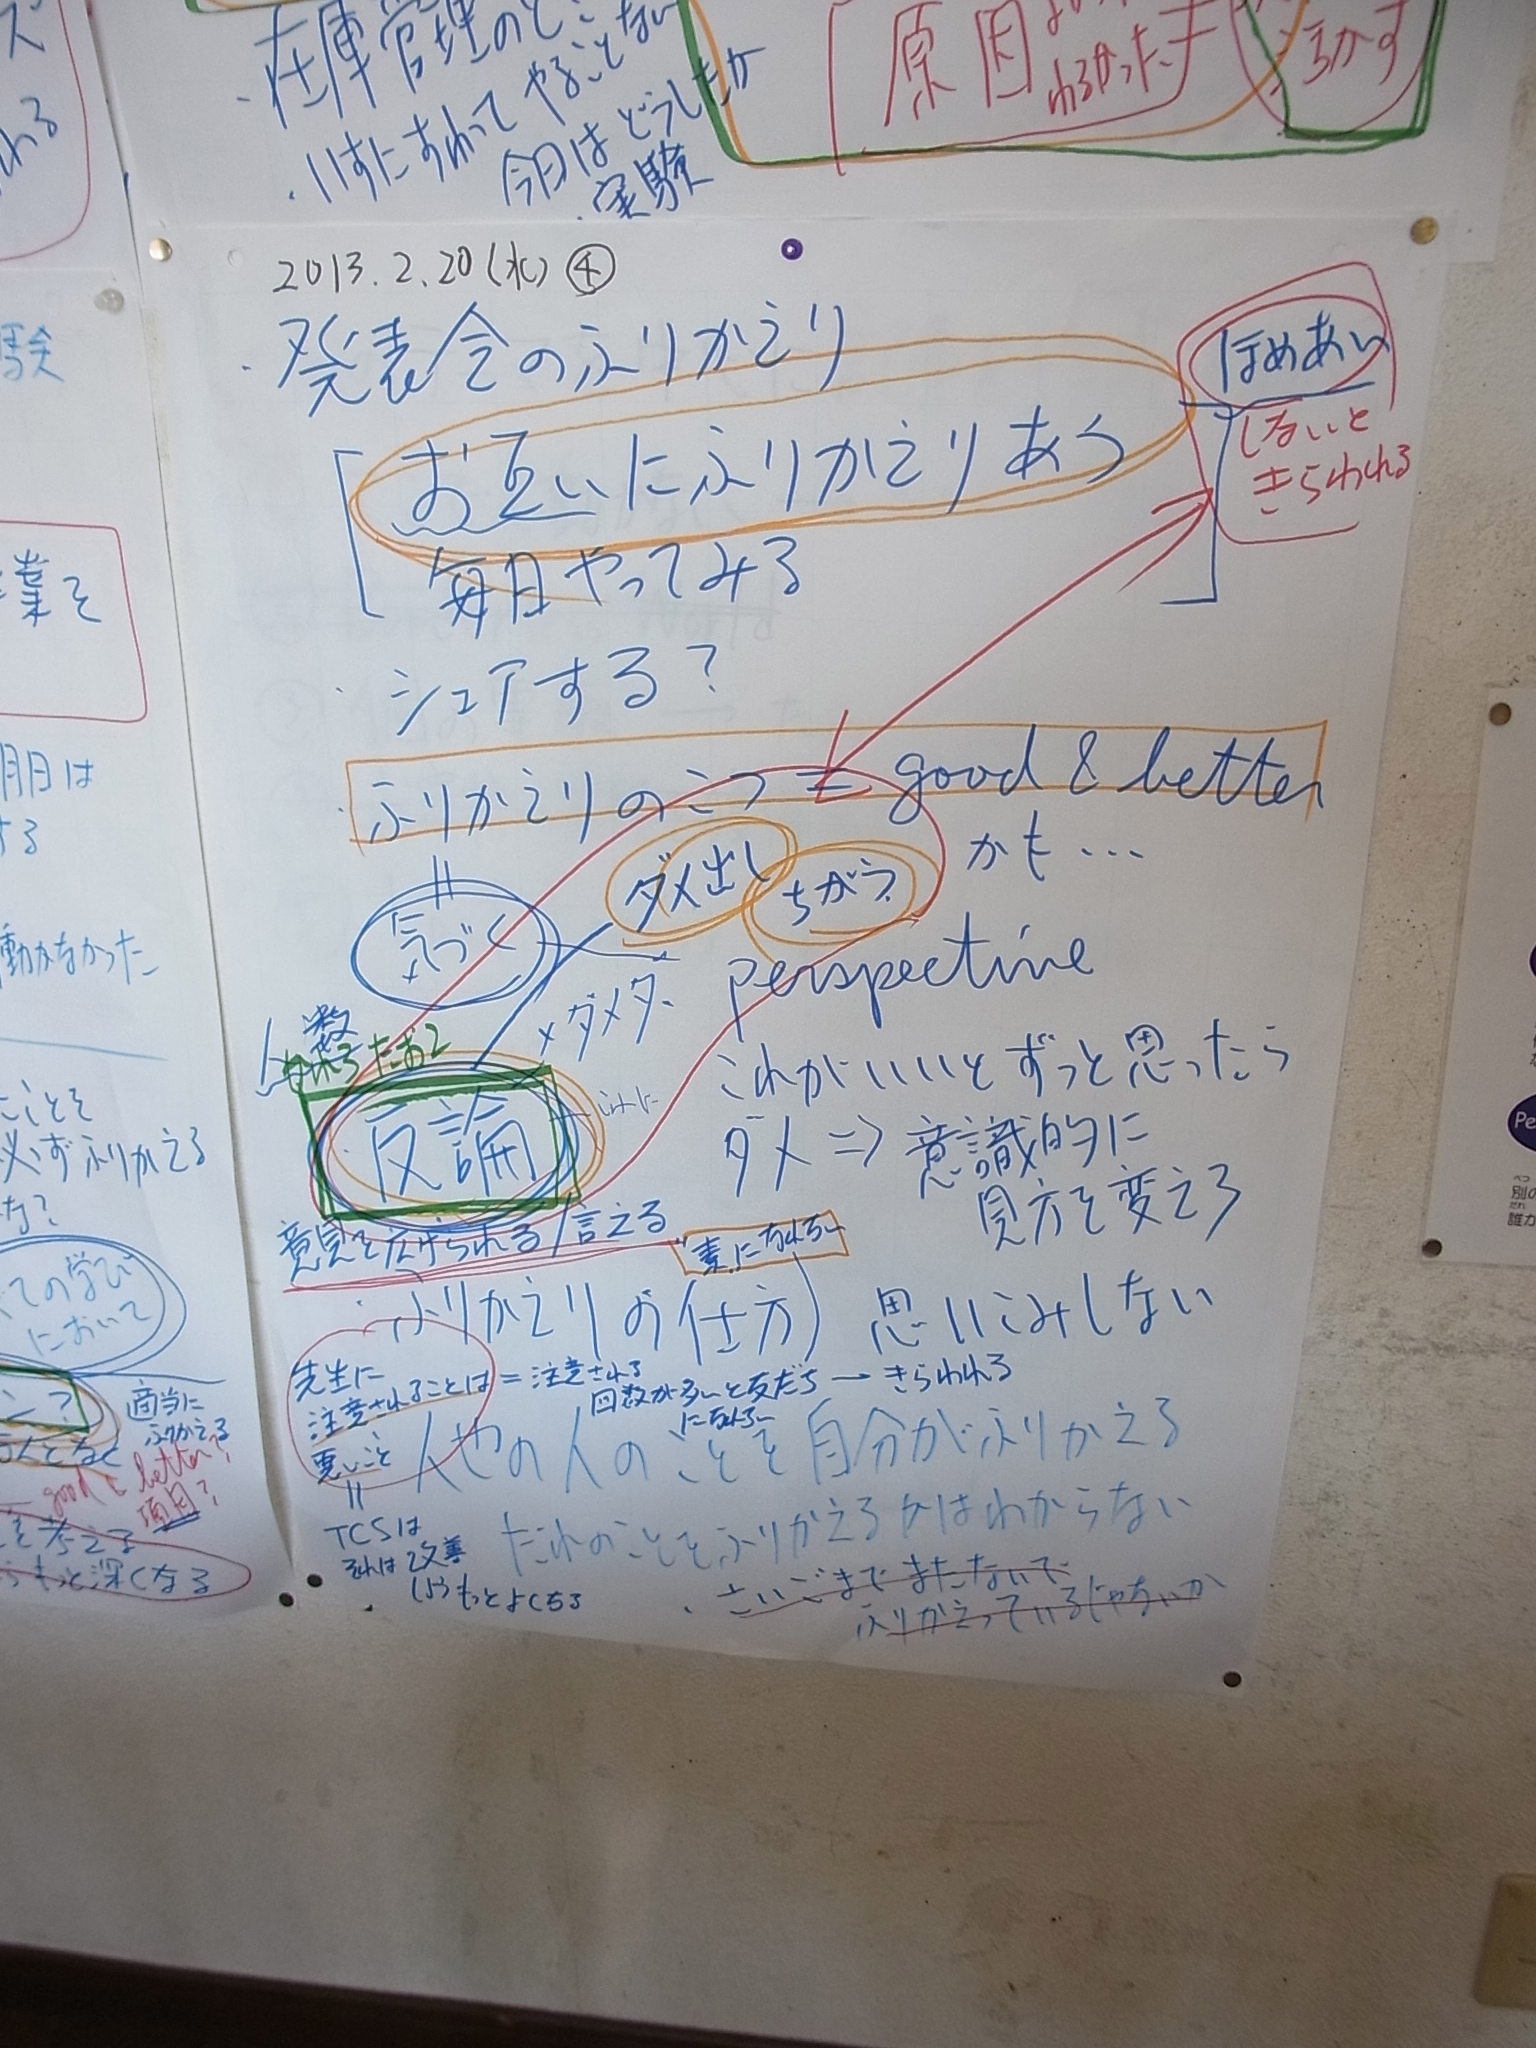 在庫管理のとこ
・いすにすわって やることない
今日は どうしたか
・実験
原因
わるかった
2013.2.20(水)④
・発表会のふりかえり
お互いにふりかえりあう
毎日やってみる
ほめあい
しないと
きらわれる
・シェアする？
・ふりかえりのこつ = good & better
かも…
ダメ出し
ちがう
気づく
×ダメダ
perspective
人数
反論
これがいいとずっと思ったら
ダメ⇒意識的に
見方を変えろ
意見を広げられる/言える
素になれる
・ふりかえりの仕方
思いこみしない
先生に
注意されることは = 注意される
悪いこと
回数が多いと友だち → きらわれる
になれる
人や の人のことを自分がふりかえる
TCSは
それは改善
もっとよくなる
だれのことをふりかえるかはわからない
・さいごまでまたないで
ふりかえっているじゃないか
験
業を
明日は
する
動かなかった
ことを
必ずふりかえる
な？
ての学び
において
適当に
ふりかえる
good & better？
項目？
を考える
もっと深くなる